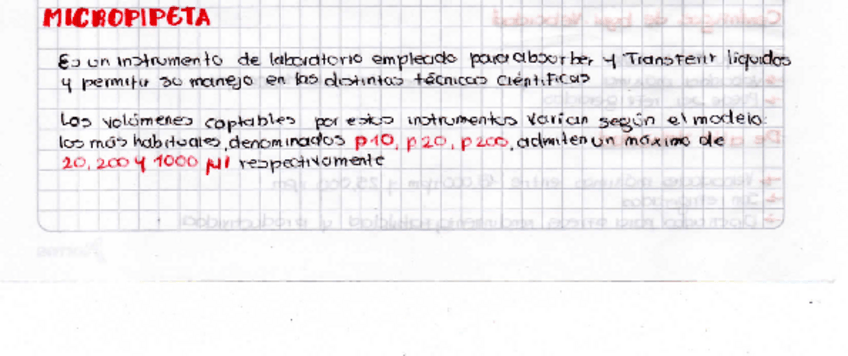 MICROPIPETA
Es un instrumento de laboratorio empleado para absorber y Transferir líquidos
y permitir su manejo en las distintas técnicas científicas
Los volúmenes captables por estos instrumentos varían según el modelo:
los más habituales, denominados p10, p20, p200, admiten un máximo de
20, 200 y 1000 µl respectivamente